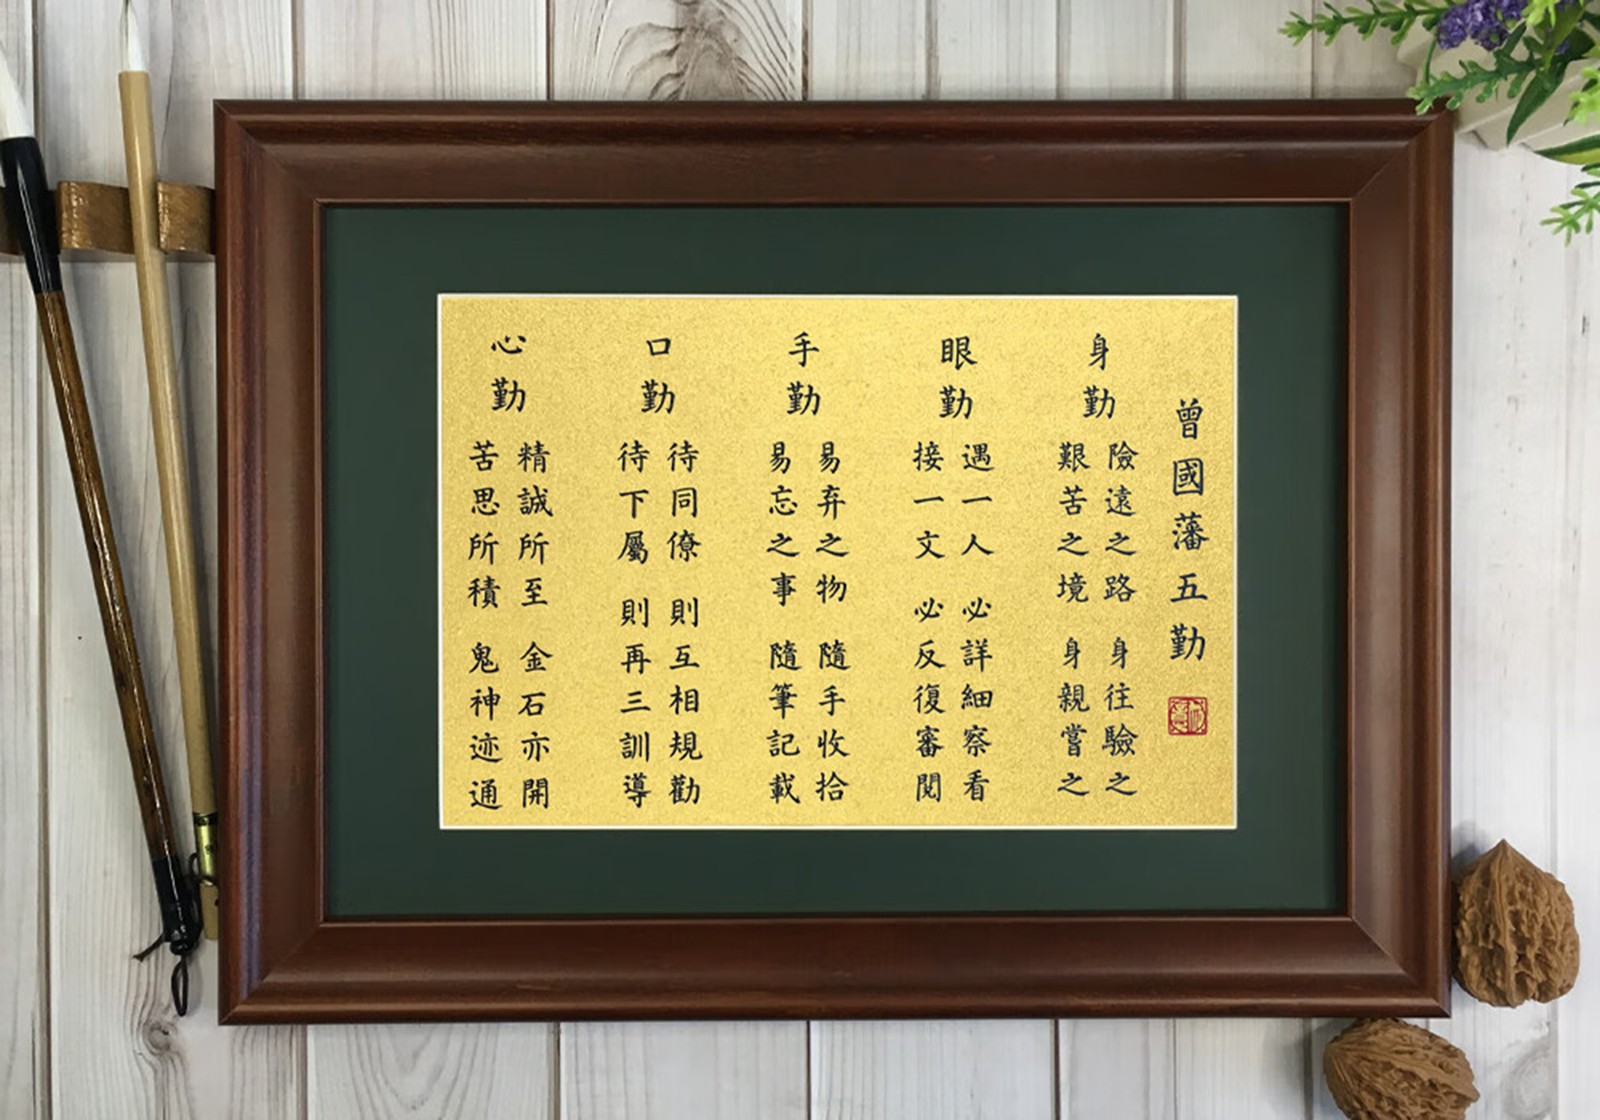 曾國藩五勤
身勤
險遠之路 身往驗之
艱苦之境 身親嘗之
眼勤
遇一人 必詳細察看
接一文 必反復審閱
手勤
易弃之物 隨手收拾
易忘之事 隨筆記載
口勤
待同僚 則互相規勸
待下屬 則再三訓導
心勤
精誠所至 金石亦開
苦思所積 鬼神迹通